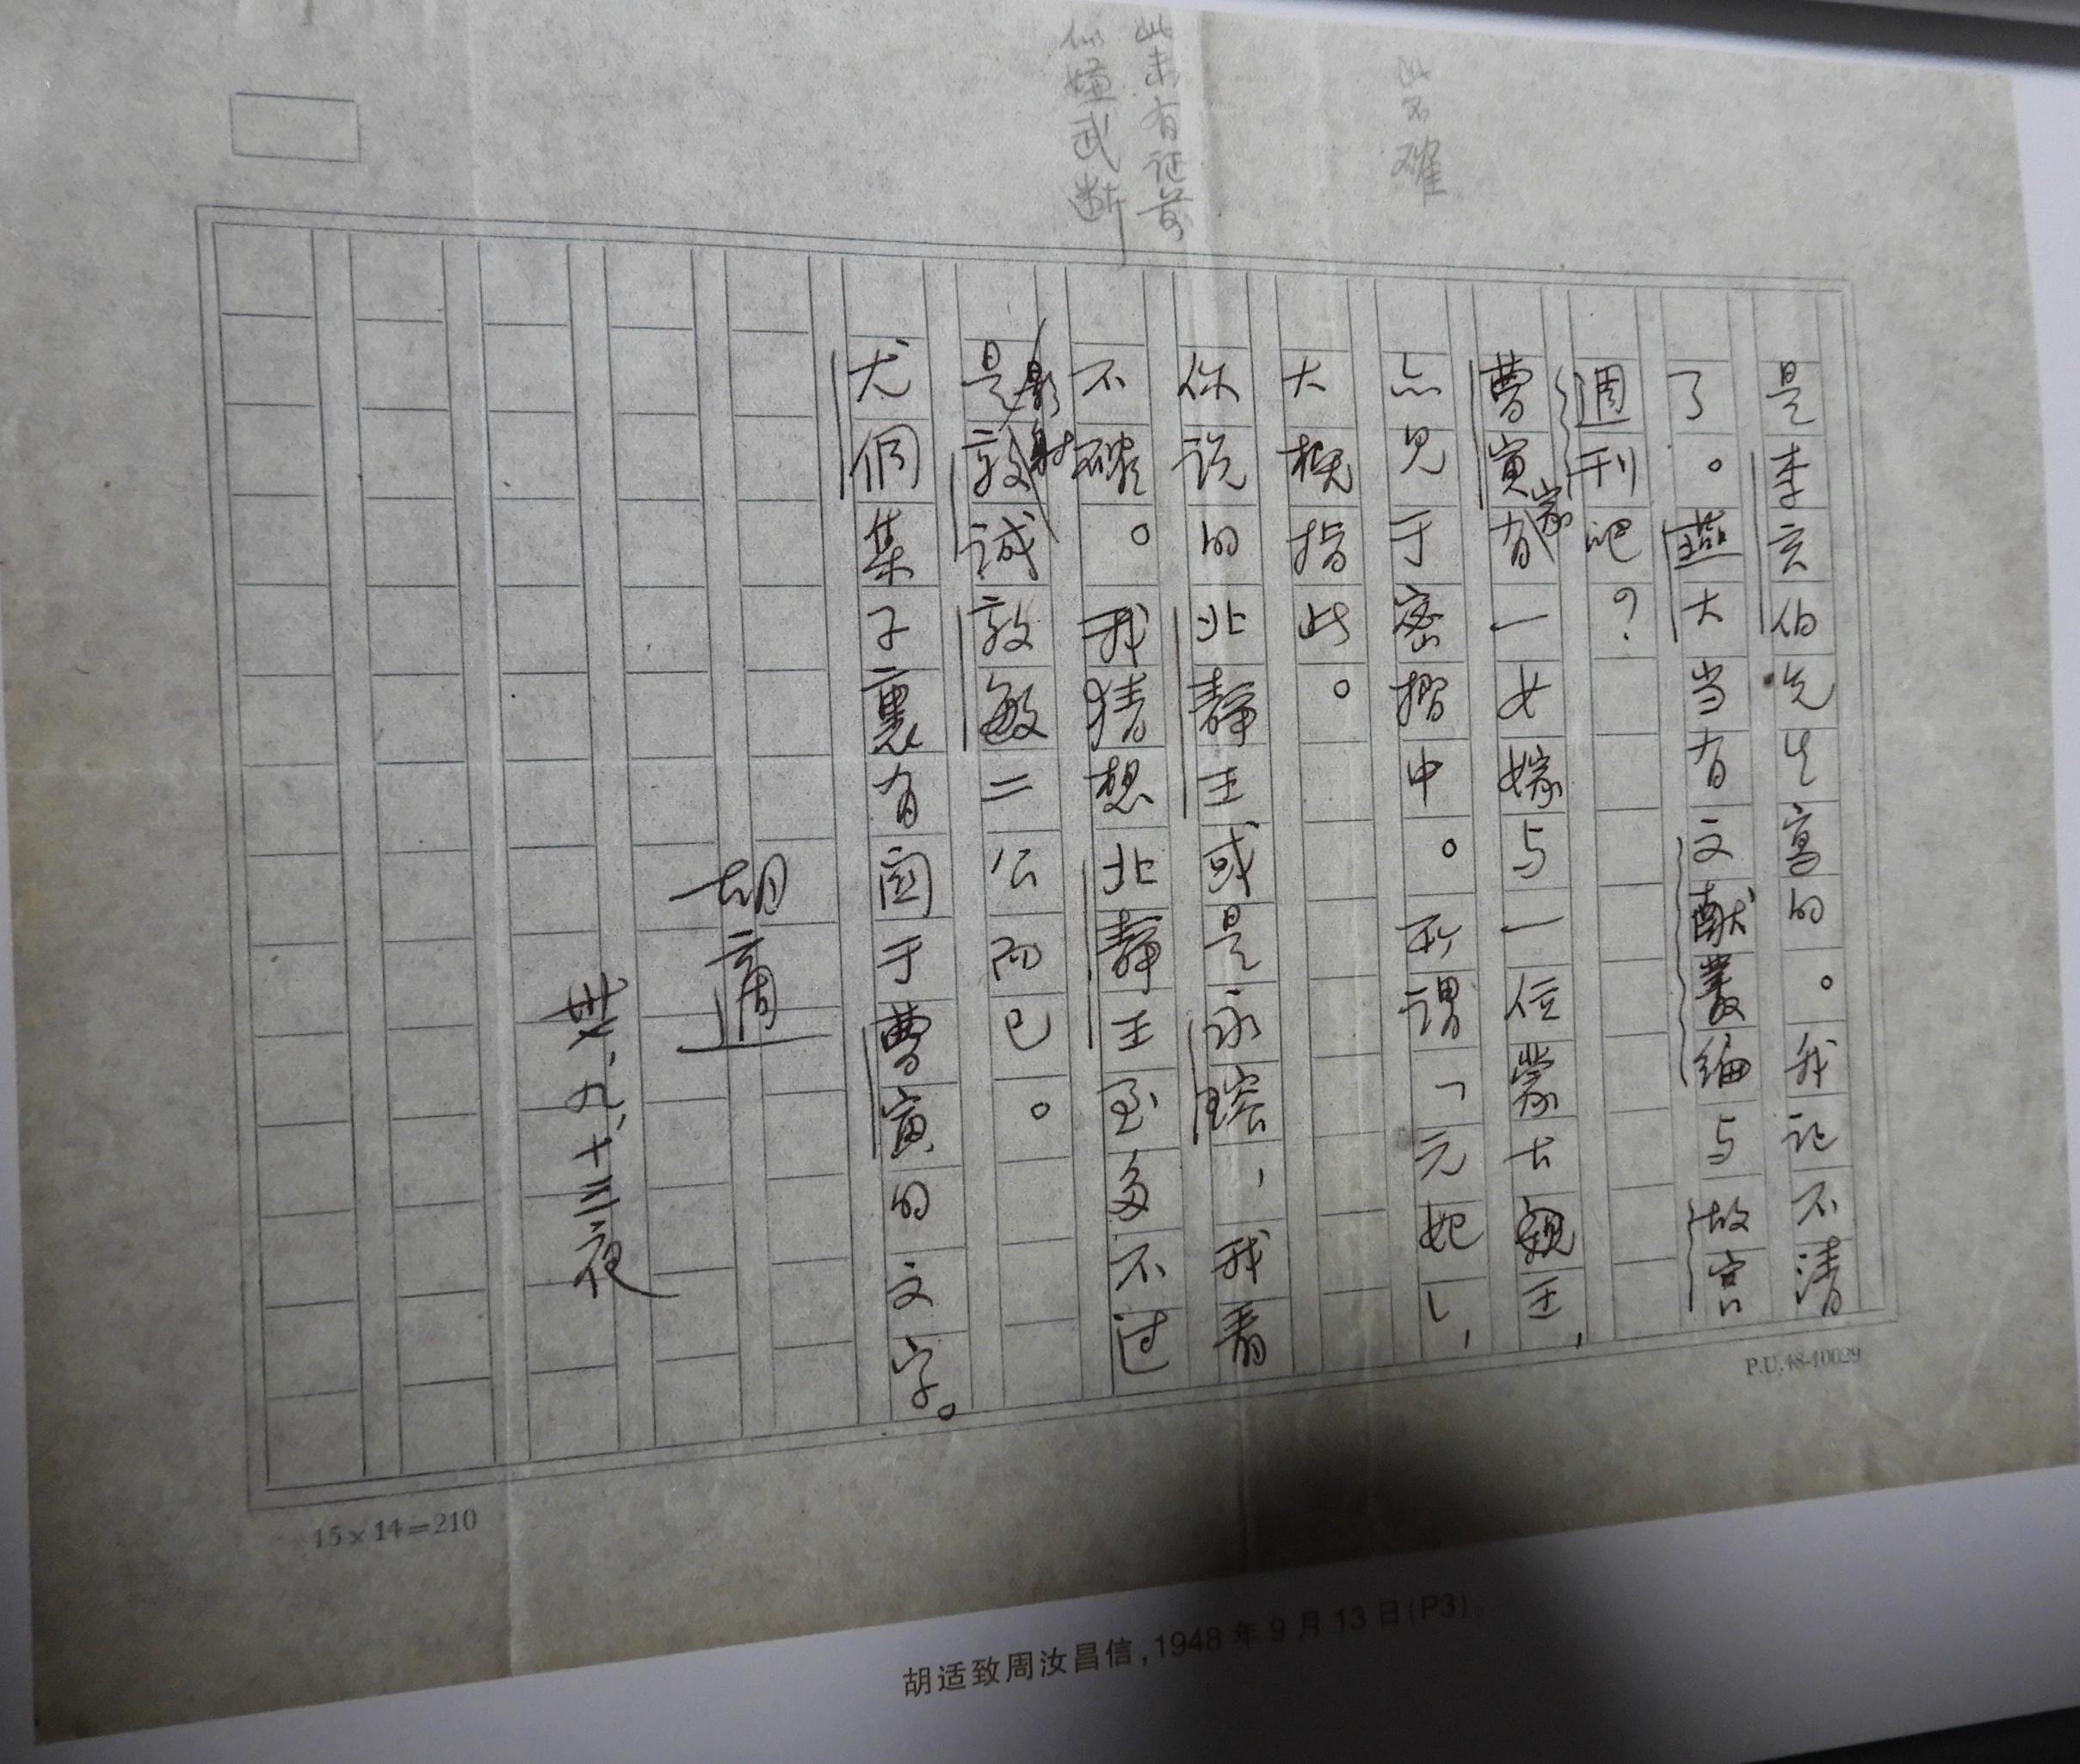 此不確
此未有证前
似嫌武断
是李玄伯先生寫的。我記不清
了。燕大当有文献叢编与故宫
週刊吧？
曹寅家有一女嫁与一位蒙古親王，
亦見于密摺中。所謂「元妃」，
大概指此。
你说的北静王或是永瑢，我看
不確。我猜想北静王至多不过
是影射敦誠敦敏二公而已。
尤侗集子裏有関于曹寅的文字。
胡適
卅七、九、十三夜
P.U.48-10029
15×14=210
胡适致周汝昌信，1948年9月13日(P3)。